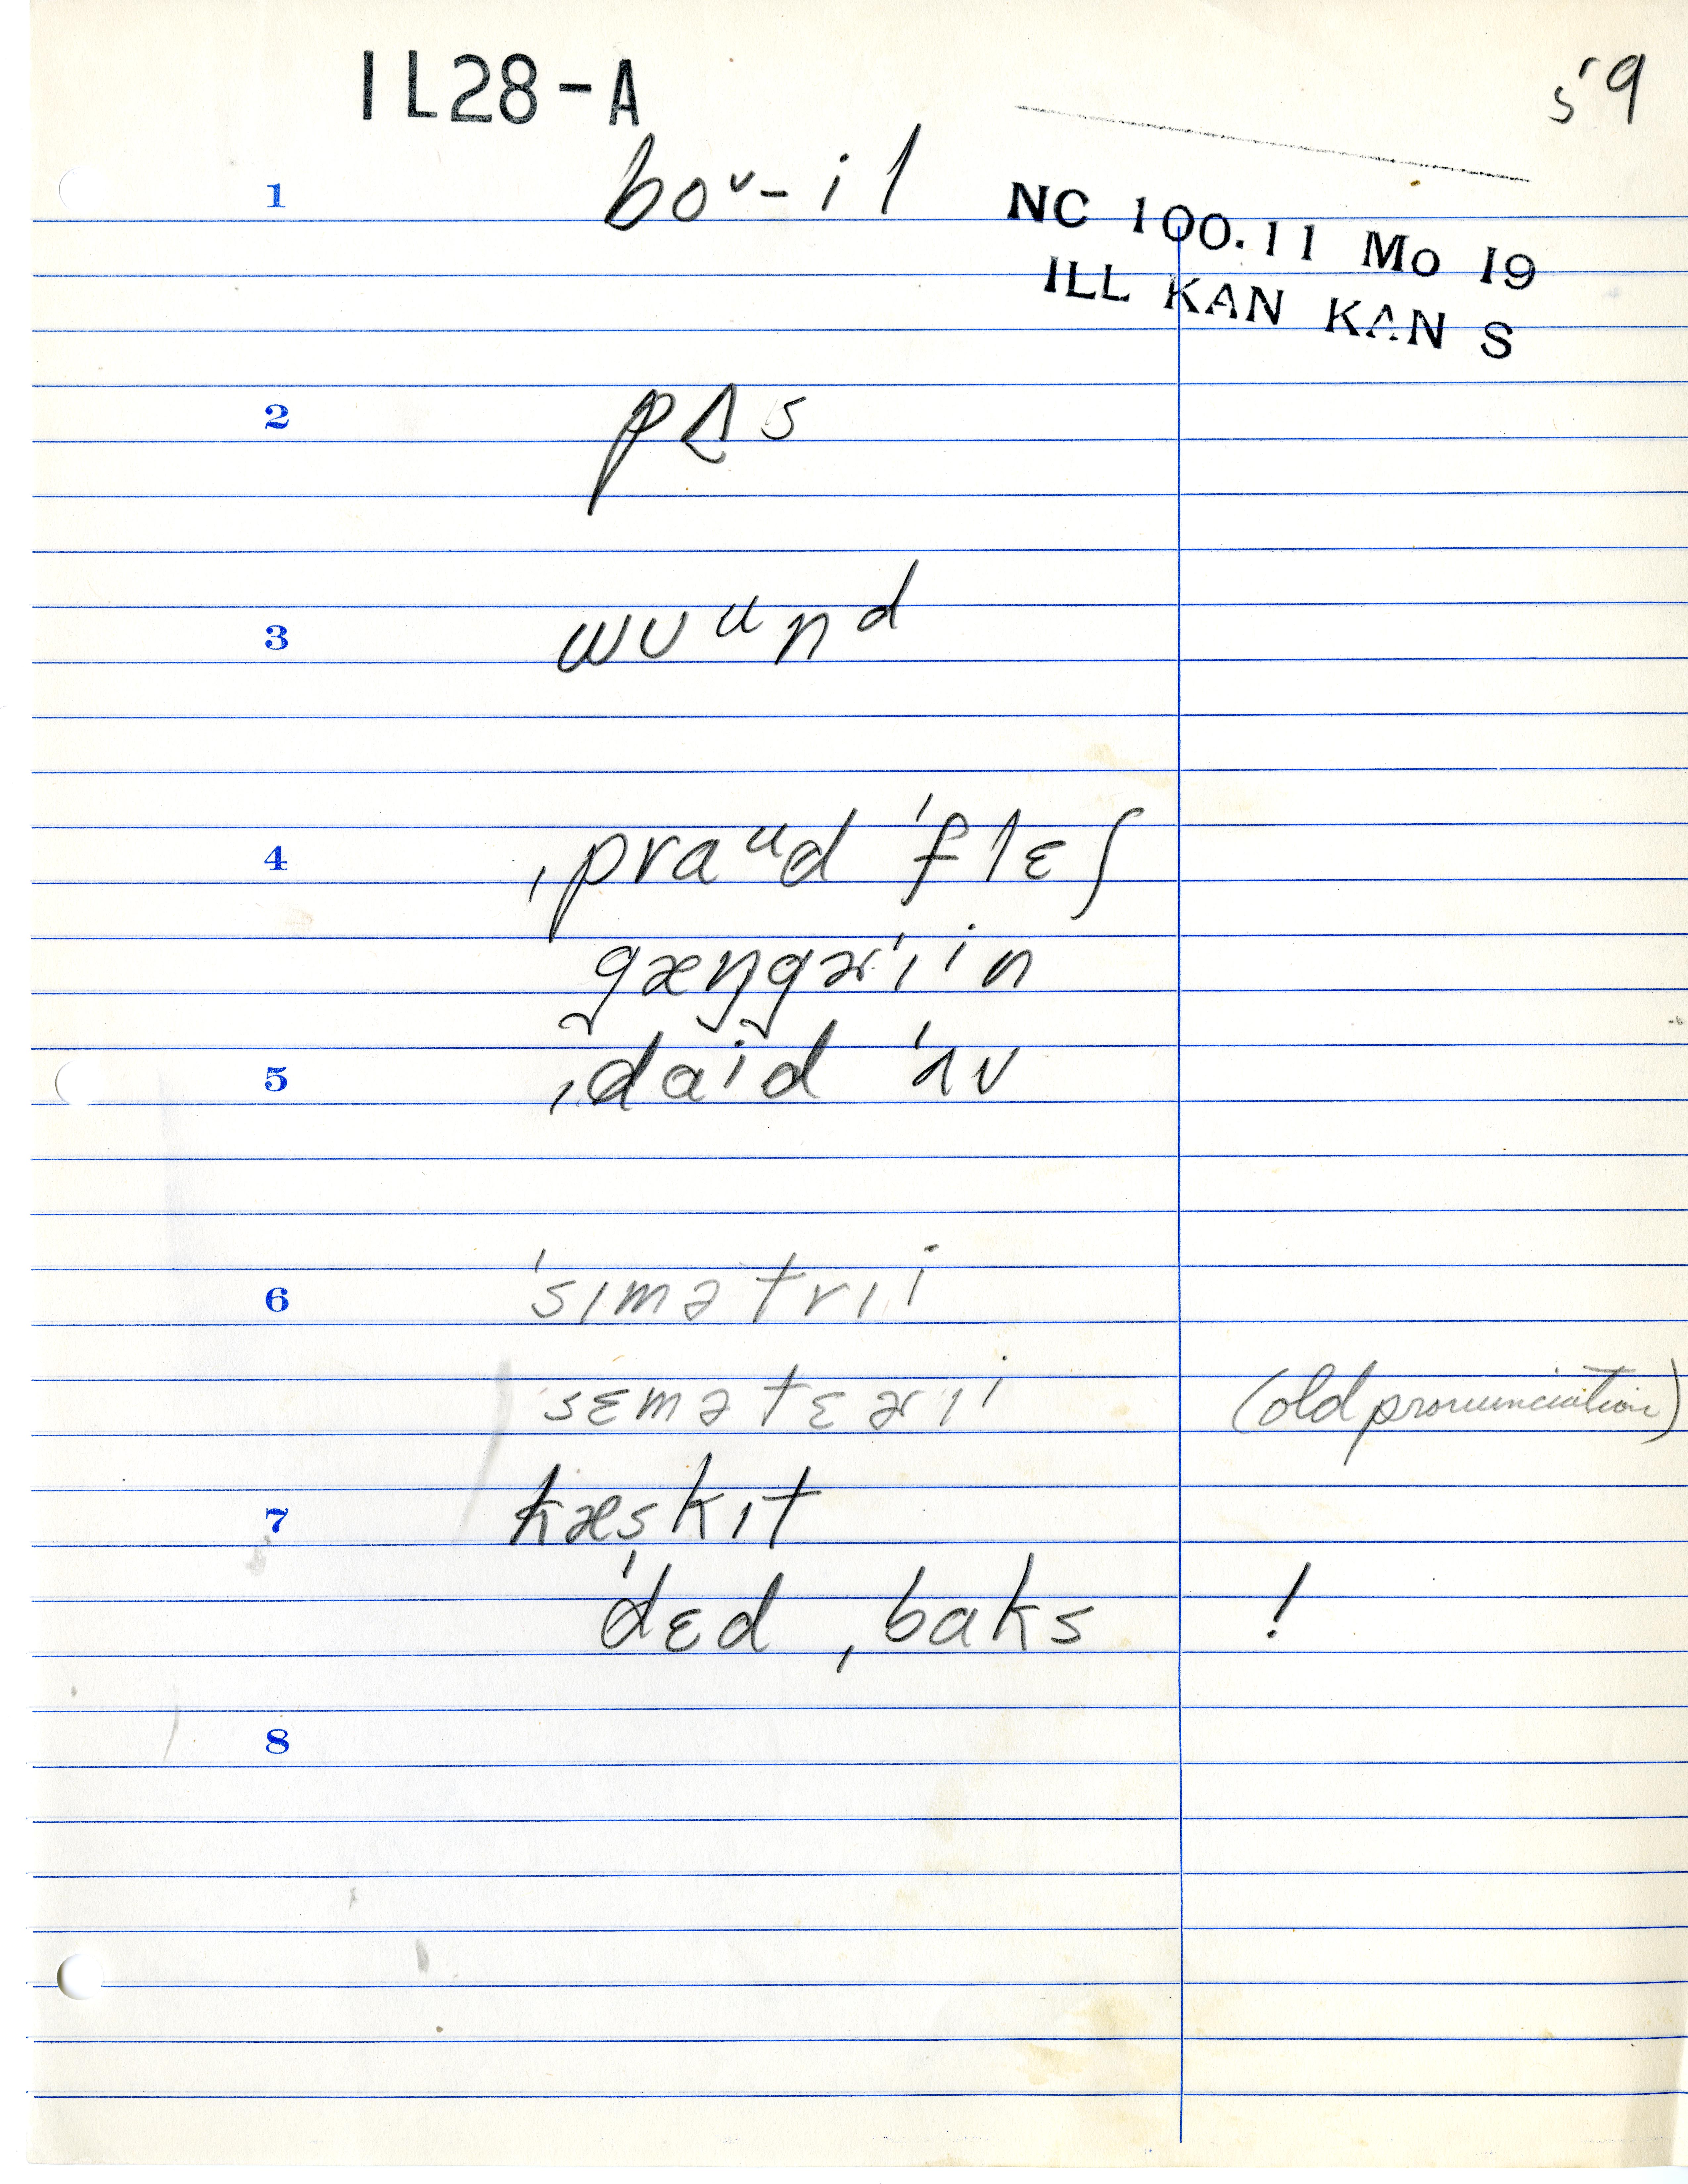 IL28-A
59
1 boᵛ-il
NC 100.11 Mo 19
ILL KAN KAN S
2 pʌs
3 wuᵘnd
4 ˌpraᵘd ˈflɛʃ
gæŋgɚˈɪⁱn
5 ˌdaⁱd ˈʌv
6 ˈsɪmətrɪⁱ
ˈsɛmətɛɚɪⁱ (old pronunciation)
7 kæskɪt
ˈdɛd ˌbaks !
8